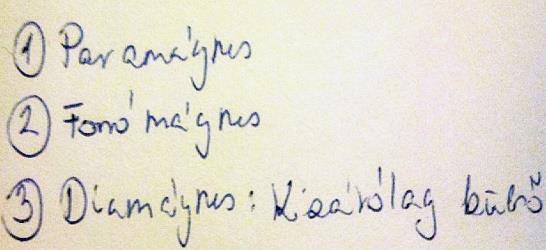 ① Paramágnes
② Forró mágnes
③ Diamágnes: Kizárólag külső